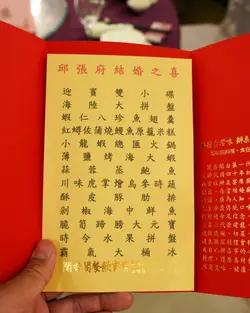 邱張府結婚之喜
迎賓雙小碟
海陸大拼盤
蝦仁八珍魚翅羹
紅蟳佛蒲燒鰻魚原籠米糕
小龍蝦總匯火鍋
薄鹽烤海大蝦
蒜蓉蒸鮑魚
川味虎掌燴烏參時蔬
酥皮豚肋排
剁椒海中鮮魚
脆筍蹄膀大元寶
時令水果拼盤
霸氣大桶冰